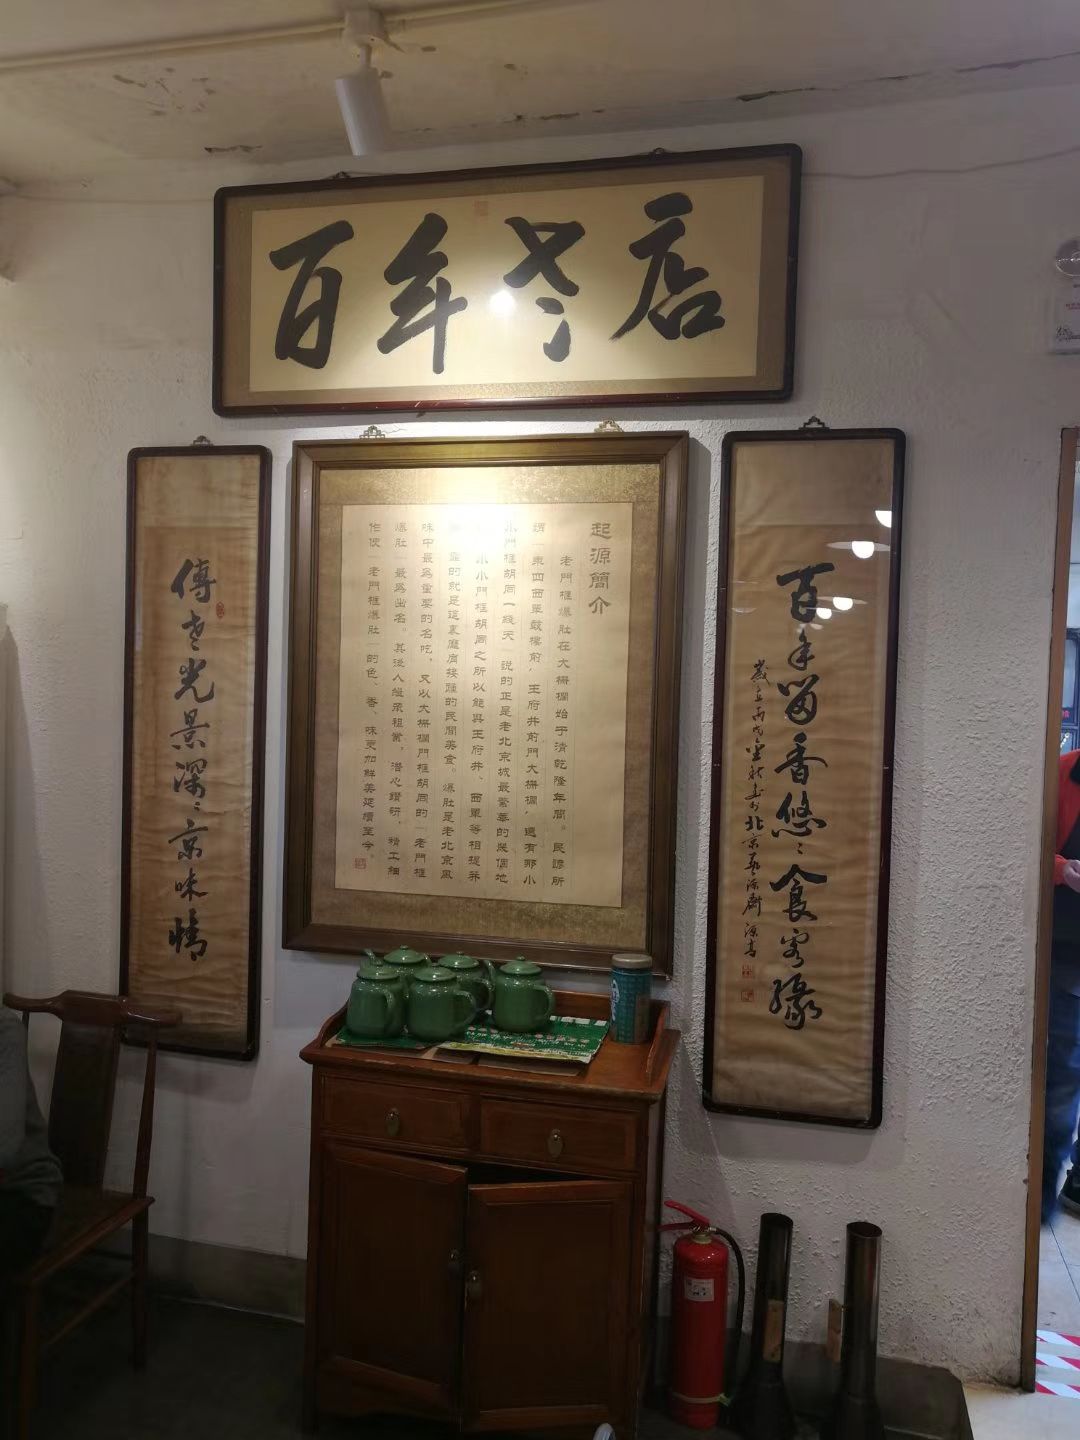 百年老店
起源簡介
老門框爆肚在大柵欄始于清乾隆年間。民諺所
謂「東四西單鼓樓前,王府井前門大柵欄,還有那小
小門框胡同一綫天」說的正是老北京城最繁華的幾個地
小小門框胡同之所以能與王府井、西單等相提并
靠的就是這裏應肩接踵的民間美食。爆肚是老北京風
味中最爲重要的名吃,又以大柵欄門框胡同的「老門框
爆肚」最爲出名。其後人繼承祖業,潜心鑽研,精工細
作使「老門框爆肚」的色、香、味更加鮮美延續至今。
百年留香悠悠食客緣
歲在丙戌金秋書於北京
傳世光景深深京味情